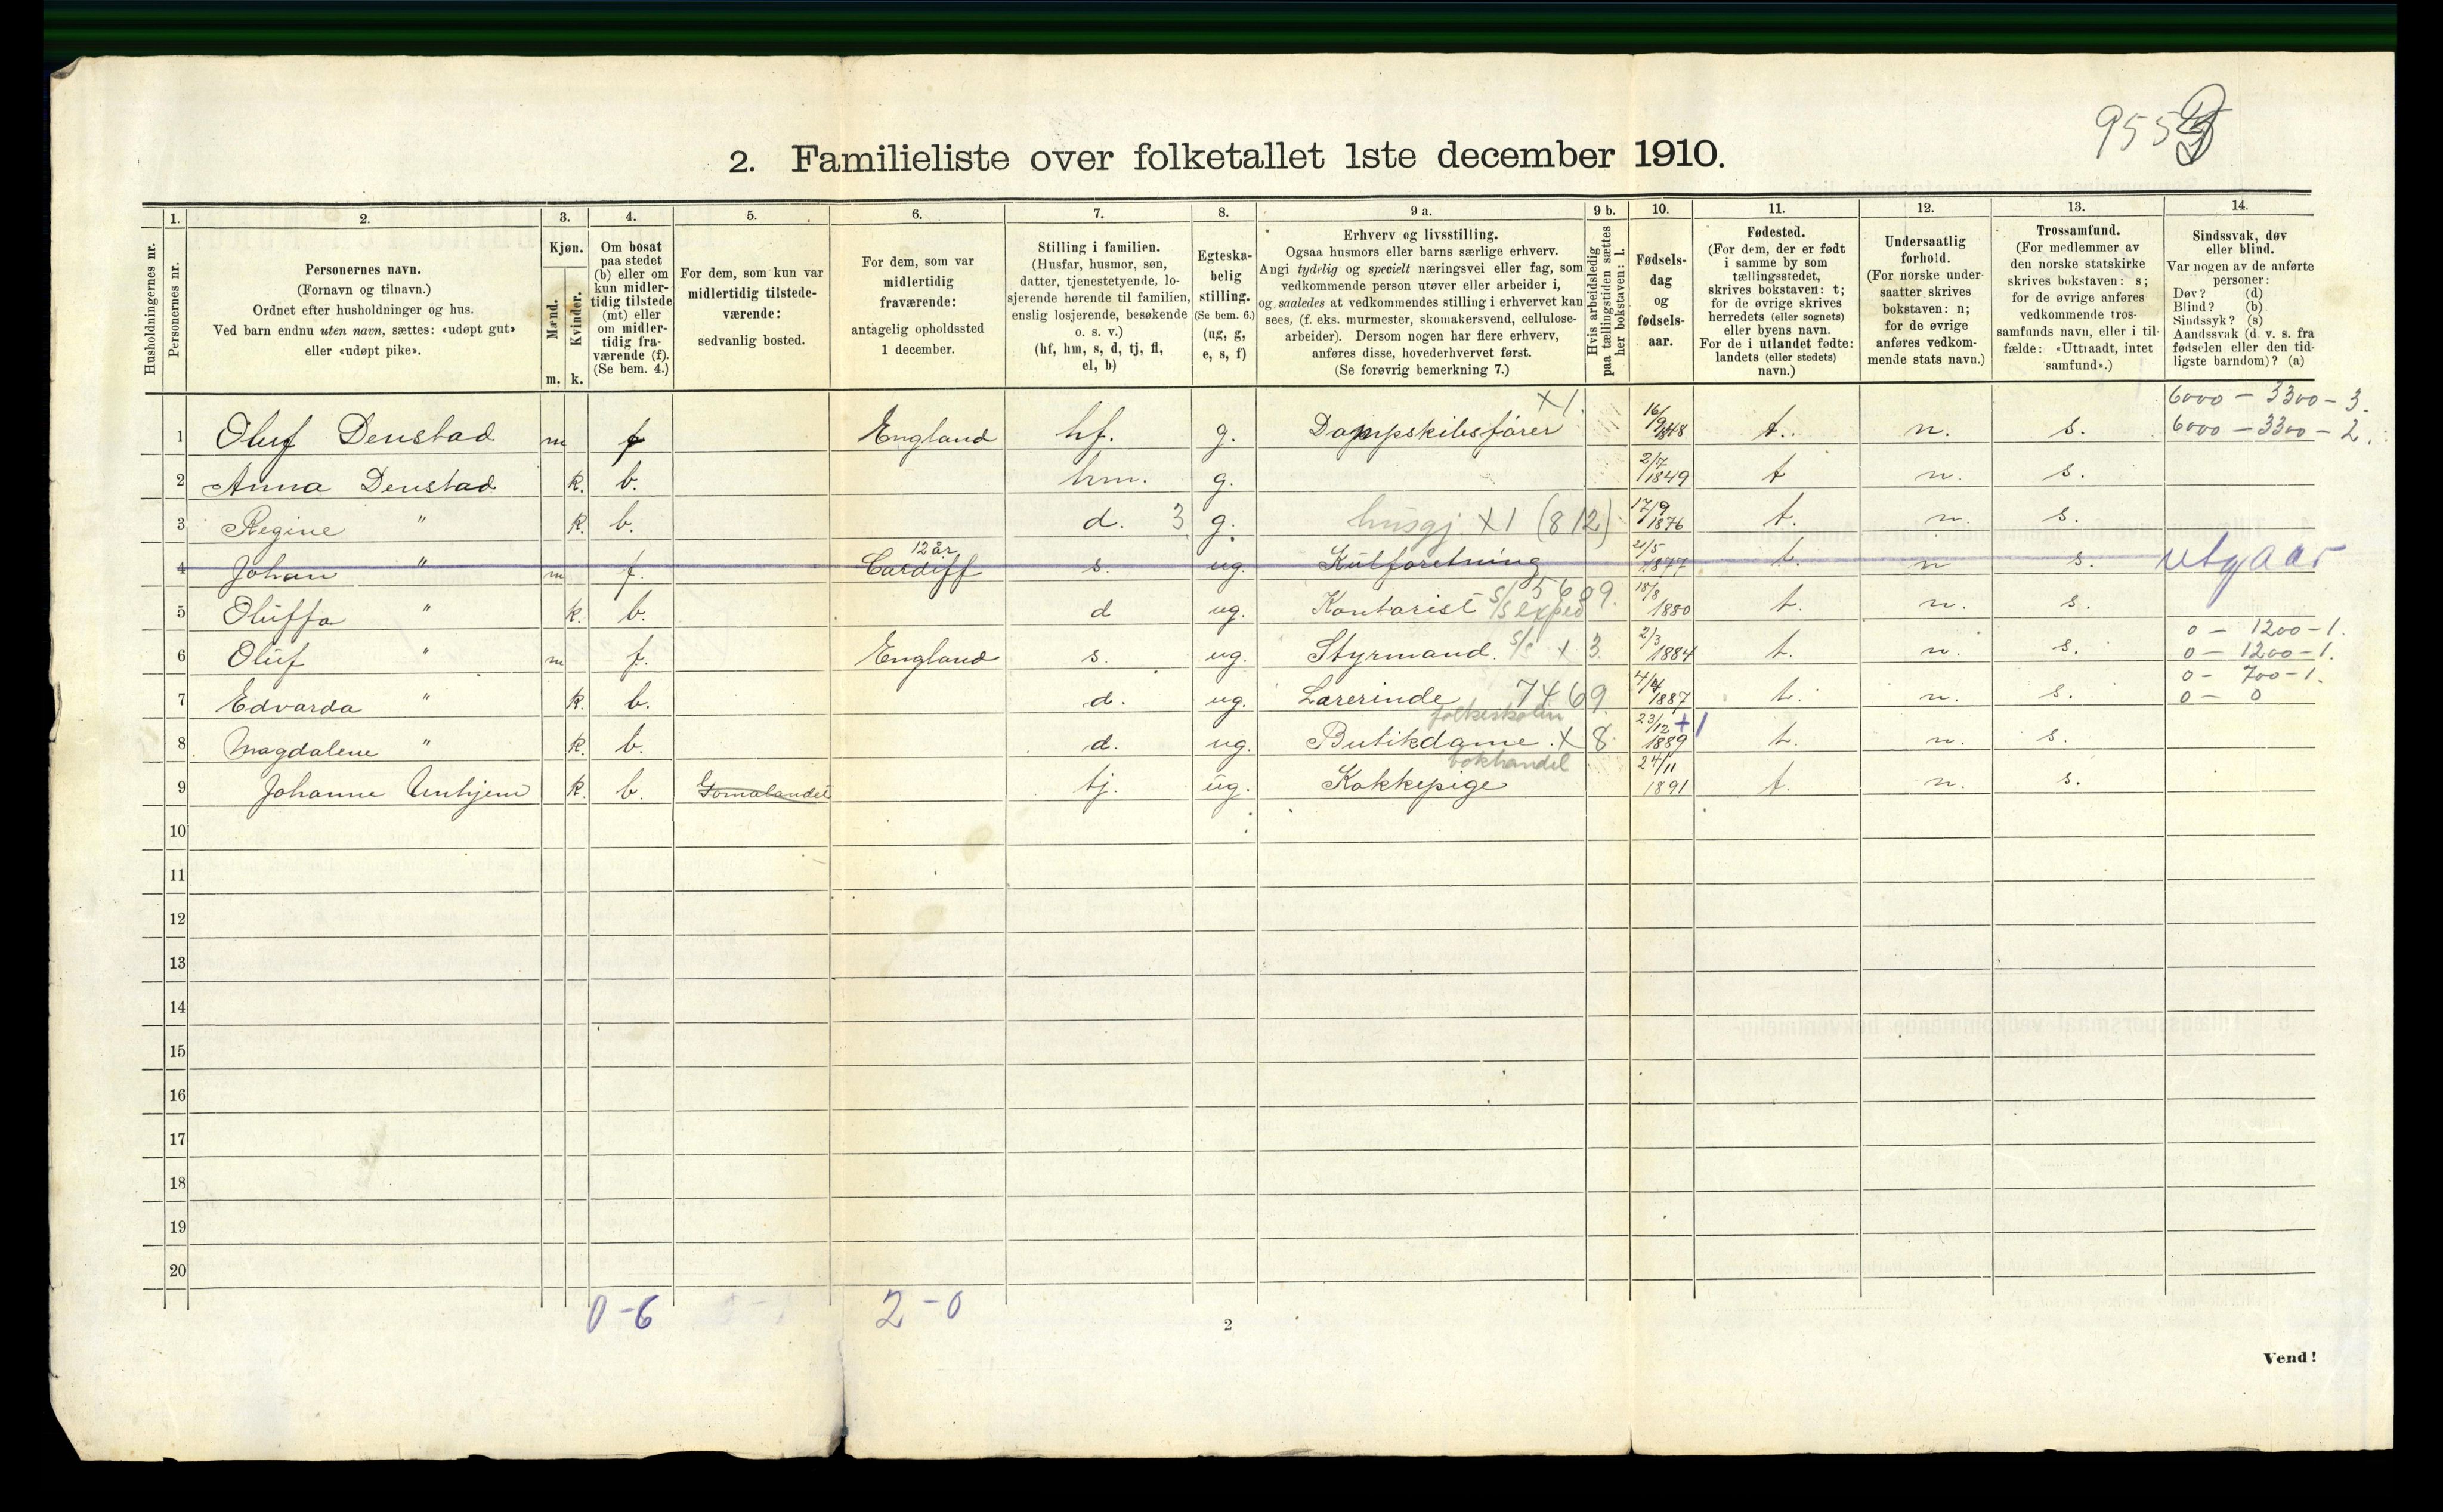 955
2. Familieliste over folketallet 1ste december 1910.
Husholdningernes nr.
1. Personernes nr.
2. Personernes navn.
(Fornavn og tilnavn.)
Ordnet efter husholdninger og hus.
Ved barn endnu uten navn, sættes: «udøpt gut»
eller «udøpt pike».
3. Kjøn.
Mænd. Kvinder.
m. k.
4. Om bosat
paa stedet
(b) eller om
kun midler-
tidig tilstede
(mt) eller
om midler-
tidig fra-
værende (f).
(Se bem. 4.)
5. For dem, som kun var
midlertidig tilstede-
værende:
sedvanlig bosted.
6. For dem, som var
midlertidig
fraværende:
antagelig opholdssted
1 december.
7. Stilling i familien.
(Husfar, husmor, søn,
datter, tjenestetyende, lo-
sjerende hørende til familien,
enslig losjerende, besøkende
o. s. v.)
(hf, hm, s, d, tj, fl,
el, b)
8. Egteska-
belig
stilling.
(Se bem. 6.)
(ug, g,
e, s, f)
9 a. Erhverv og livsstilling.
Ogsaa husmors eller barns særlige erhverv.
Angi tydelig og specielt næringsvei eller fag, som
vedkommende person utøver eller arbeider i,
og saaledes at vedkommendes stilling i erhvervet kan
sees, (f. eks. murmester, skomakersvend, cellulose-
arbeider). Dersom nogen har flere erhverv,
anføres disse, hovederhvervet først.
(Se forøvrig bemerkning 7.)
9 b. Hvis arbeidsledig
paa tællingstiden sættes
her bokstaven: l.
10. Fødsels-
dag
og
fødsels-
aar.
11. Fødested.
(For dem, der er født
i samme by som
tællingsstedet,
skrives bokstaven: t;
for de øvrige skrives
herredets (eller sognets)
eller byens navn.
For de i utlandet fødte:
landets (eller stedets)
navn.)
12. Undersaatlig
forhold.
(For norske under-
saatter skrives
bokstaven: n;
for de øvrige
anføres vedkom-
mende stats navn.)
13. Trossamfund.
(For medlemmer av
den norske statskirke
skrives bokstaven: s;
for de øvrige anføres
vedkommende tros-
samfunds navn, eller i til-
fælde: «Uttraadt, intet
samfund».)
14. Sindssvak, døv
eller blind.
Var nogen av de anførte
personer:
Døv? (d)
Blind? (b)
Sindssyk? (s)
Aandssvak (d. v. s. fra
fødselen eller den tid-
ligste barndom)? (a)
6000 - 3300 - 3.
1 Oluf Denstad m f England hf. g. Dampskibsfører X1. 16/9 1848 t. n. s. 6000 - 3300 - 2.
2 Anna Denstad k. b. hm. g. 2/7 1849 t n. s.
3 Regine " k. b. d. 3 g. husgj. X1 (812) 17/9 1876 t. n. s.
4 Johan " m f. 12 år Cardiff s. ug. Kulforetning 21/5 1877 t. n s. utgaar
5 Oluffa " k. b. d ug. Kontorist s/s exped 5609. 18/8 1880 t. n. s.
0 - 1200 - 1.
6 Oluf " m f. England s. ug. Styrmand. s/s x 3. 2/3 1884 t. n. s. 0 - 1200 - 1.
0 - 700 - 1.
7 Edvarda " k. b. d. ug. Lærerinde 7469. folkeskolen 4/4 1887 t. n. s. 0 - 0
8 Magdalene " k. b. d. ug. Butikdame. x 8. bokhandel 23/12 1889 +1 t. n. s.
9 Johanne Unhjem k. b. Gomalandet tj. ug. Kokkepige 24/11 1891 t. n. s.
10
11
12
13
14
15
16
17
18
19
20
0 - 6 2 - 0
2
Vend!